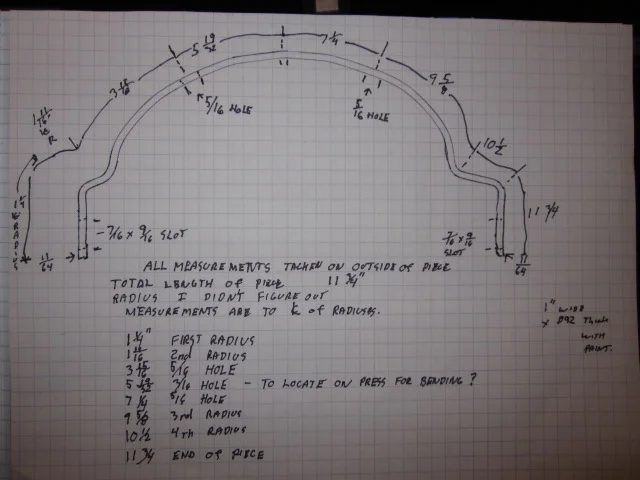 5 19/32
7 1/4
3 15/16
9 5/8
1 11/16
R
5/16 HOLE
5/16 HOLE
10 1/2
1 1/4
RADIUS
11 3/4
7/16 x 9/16 SLOT
7/16 x 9/16
SLOT
11/64
11/64
ALL MEASUREMENTS TACKEN ON OUTSIDE OF PIECE
TOTAL LENGTH OF PIECE 11 3/4"
RADIUS I DIDN'T FIGURE OUT
MEASUREMENTS ARE TO OF RADIUSES.
1" WIDE
x .092 Thick
WITH
PAINT.
1 1/4" FIRST RADIUS
1 11/16 2nd RADIUS
3 15/16 5/16 HOLE
5 19/32 3/16 HOLE - TO LOCATE ON PRESS FOR BENDING?
7 1/4 5/16 HOLE
9 5/8 3rd RADIUS
10 1/2 4th RADIUS
11 3/4 END OF PIECE